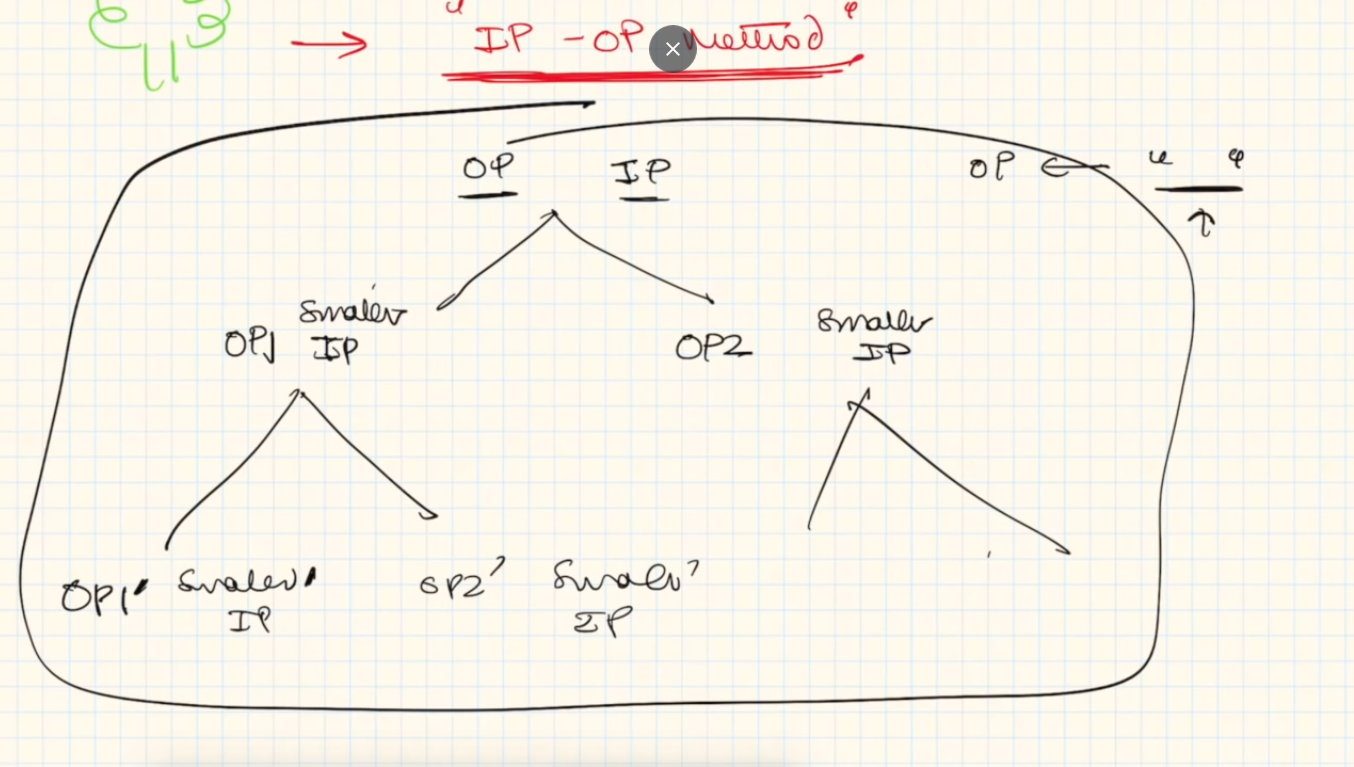 " IP - OP method "
OP IP
OP ← " "
OP1 Smaller
IP
OP2 Smaller
IP
OP1' Smaller'
IP
OP2' Smaller'
IP